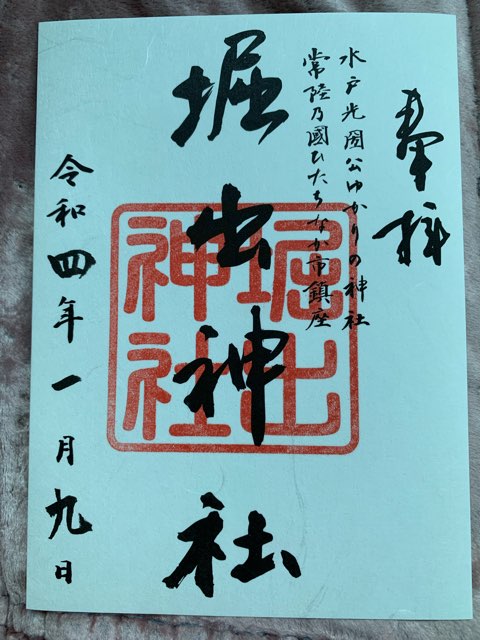 奉拝
水戸光圀公ゆかりの神社
常陸乃國ひたちなか市鎮座
堀出神社
堀出
神社
令和四年一月九日